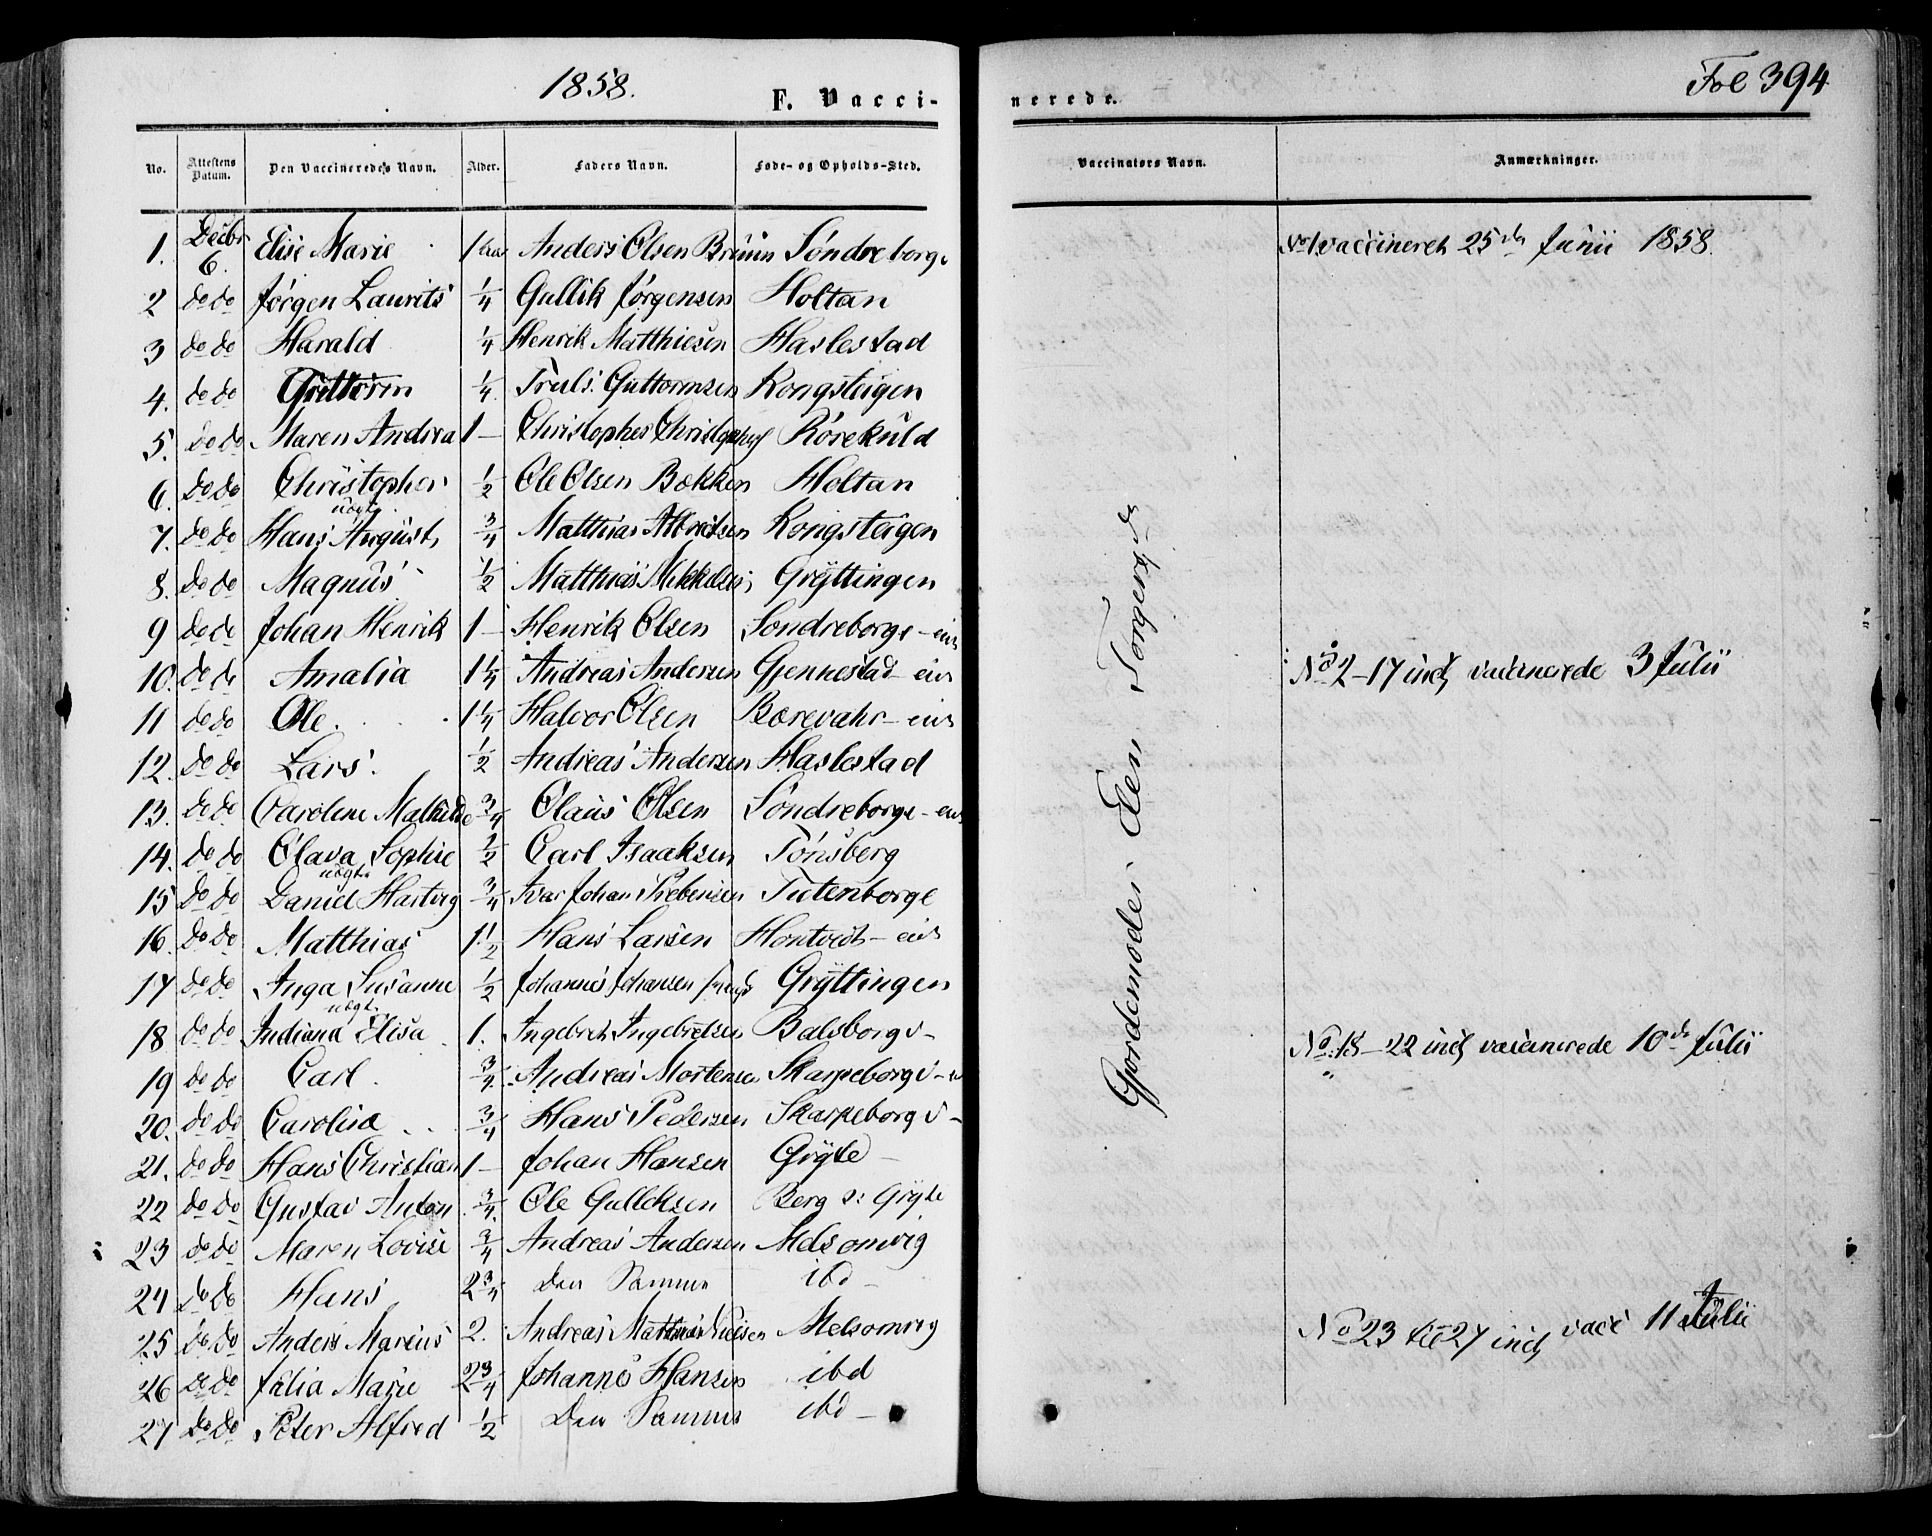 1858.
F. Vacci-
nerede.
Fol 394
No. Attestens Datum. Den Vaccineredes Navn. Alder. Faders Navn. Føde- og Opholds-Sted. Vaccinators Navn. Anmærkninger.
1. Decbr 6. Elise Marie 1 Anders Olsen Bruun Søndreborge No 1 vaccineret 25de Junii 1858.
2 do do Jørgen Laurits 1/4 Gullik Jørgensen Holtan
3 do do Harald 1/4 Henrik Matthiesen Haslestad
4. do do Guttorm 1/4. Truls Guttormsen Kongsteigen
5. do do Maren Andrea 1 – Christopher Rørekuld
6. do do Christopher 1/2 Ole Olsen Bækken Holtan
7. do do Hans August 3/4 Matthias Kongsteigen
uægt.
8. do do Magnus 1/2 Matthias Gryttingen
9 do do Johan Henrik 1 – Henrik Olsen Søndreborge – eie
10. do do Amalia 1 1/4 Andreas Andersen Gjennestad – eie
No 2 – 17 incl vaccinerede 3 Julii
11 do do Ole. 1 1/4 Halvor Olsen – eie
12. do do Lars. 1/2 Andreas Andersen Haslestad
13. do do Caroline Mathilde 3/4 Olaus Olsen Søndreborge – eie
14. do do Olava Sophie 1/2 Carl Isaaksen Tønsberg
15 do do Daniel Hartvig 3/4 Ivar Johan Prebensen Tutenborge
uægte
16. do do Matthias 1 1/2 Hans Larsen Hontvedt – eie
17 do do Inga Susanne 1/2 Johannes Johansen Gryttingen
18 do do Indiana Elisa 1. Ingebret Ingebretsen
uægt.
No. 18 – 22 incl vaccinerede 10de Julii
19 do do Carl. 3/4. Andreas Mortensen
20. do do Caroline 3/4 Hans Pedersen
21. do do Hans Christian 1 – Johan Hansen Gryte –
22 do do Gustav Anton 3/4. Ole Gulliksen Berg
23 do do Maren Lovise 3/4 Andreas Andersen Melsomvig
24 do do Hans 2 3/4 Den Samme ibd –
25 do do Anders Marius 2. Andreas Melsomvig
No 23 til 27 incl vacc 11 Julii
26 do do Julia Marie 2 3/4 Johannes Hansen ibd
27 do do Peter Alfred 1/2 Den Samme ibd –
Gjordemoder Elen